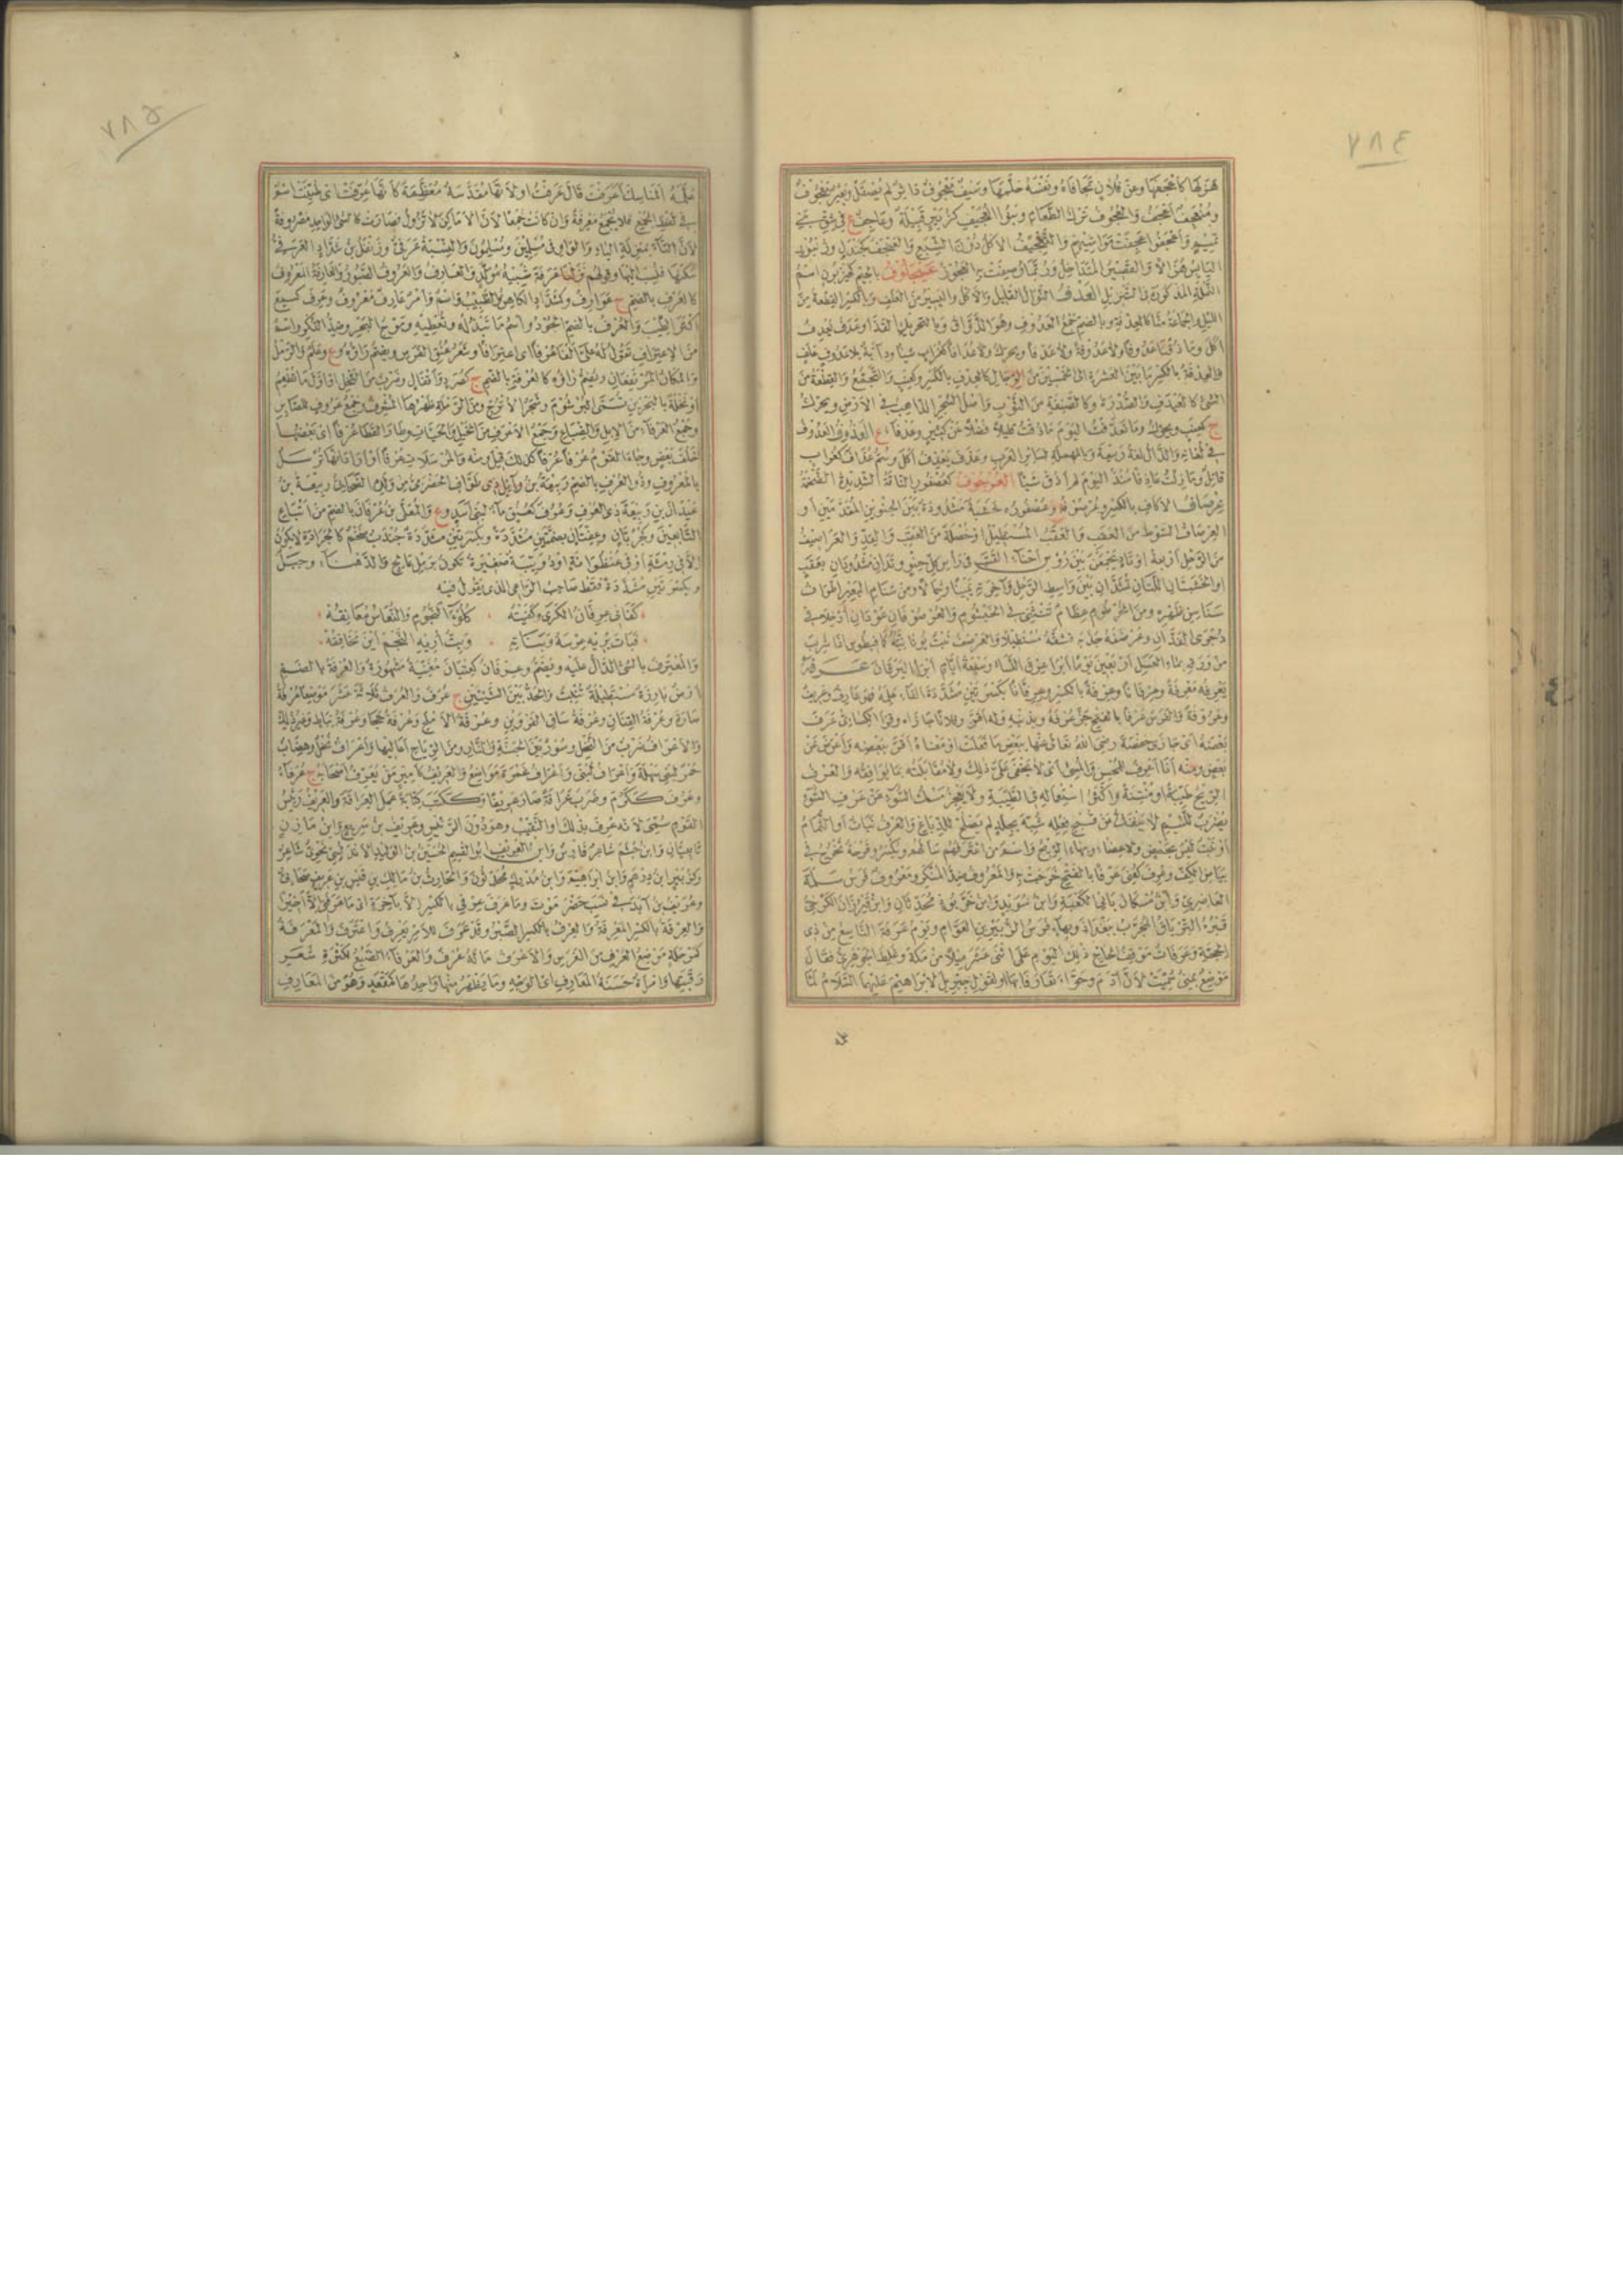 ٧٨٤
هزلها كاعجفها وعن فلان تجافاه ونفسه حلمها وسيف معجوف داثر لم يصقل وبعير معجوف
ومنعجف اعجف والعجوف ترك الطعام وبنو العجيف كزبير قبيلة وعاجف ع في شق بني
تميم واعجفوا عجفت مواشيهم والتعجيف الاكل دون الشبع
عيجلوف بالجيم كحيزبون اسم
النملة المذكورة في التنزيل العدف النوال القليل والاكل واليسير من العلف وبالكسر القطعة من
الليل والجماعة منا كالعدفة وبالضم جمع العدوف وهو الذواق وبالتحريك القذى وعدف يعدف
اكل وما ذقنا عدوفا ولا عدوفة ولا عدفا ويحرك ولا عدافا كغراب شيئا ودابة بلا عدوف علف
والعدفة بالكسر ما بين العشرة الى خمسين من الرجال كالعدف بالكسر وكعنب والتجمع والقطعة من
الشئ كالعيدف والصدرة وكالصنفة من الثوب واصل الشجر الذاهب في الارض ويحرك
ج كعنب ويحرك وما تعدفت اليوم ما ذقت قليلا فضلا عن كثير وعدفاء ع العذوف العدوف
في لغاته والذال لغة ربيعة وبالمهملة لسائر العرب وعذف يعذف اكل وسم عذاف كغراب
قاتل وما زلت عاذفا منذ اليوم لم اذق شيئا العرجوف كعصفور الناقة الشديدة الضخمة
عرصاف الاكاف بالكسر وعرصوفه وعصفوره خشبة مشدودة بين الحنوين المقدمين او
العرصاف السوط من العقب والعقب المستطيل او خصلة من العقب والقد والعراصيف
من الرحل اربعة اوتاد يجمعن بين رؤس احناء القتب في راس كل حنو وتدان مشدودان بعقب
او الخشبتان اللتان تشدان بين واسط الرحل واخرته يمينا وشمالا ومن سنام البعير اطراف
سناسن ظهره ومن الخرطوم عظام تنثني في الخيشوم والعرصوفان عودان ادخلا في
دجرى الفدان وعرصفه جذبه فشقه مستطيلا والعرصف نبت
من ورقه بماء العسل اربعين يوما ابرا عرق النسا وسبعة ايام ابرا اليرقان عرفه
يعرفه معرفة وعرفانا وعرفة بالكسر وعرفانا بكسرتين مشددة الفاء علمه فهو عارف وعريف
وعروفة والفرس عرفا بالفتح جز عرفه وبذنبه وله اقر وفلانا جازاه وقرا الكسائي عرف
بعضه اى جازى حفصة رضى الله تعالى عنها ببعض ما فعلت او معناه اقر ببعضه واعرض عن
بعض ومنه انا اعرف للمحسن والمسئ اى لا يخفى على ذلك ولا مقابلته بما يوافقه والعرف
الريح طيبة او منتنة واكثر استعماله في الطيبة ولا يعجز مسك السوء عن عرف السوء
يضرب للئيم لا ينفك من قبح فعله شبه بجلد لم يصلح للدباغ والعرف نبات او الثمام
او نبت ليس بحمض ولا عضاه وبهاء الريح واسم من اعترفهم سالهم ويكسر وقرحة تخرج في
بياض الكف وعرف كعنى عرفا بالفتح خرجت به والمعروف ضد المنكر ومعروف فرس سلمة
الغاضري وابن مسكان بانى الكعبة وابن سويد وابن خربوذ محدثان وابن فيرزان الكرخي
قبره الترياق المجرب ببغداد وبهاء فرس الزبير بن العوام ويوم عرفة التاسع من ذى
الحجة وعرفات موقف الحاج ذلك اليوم على اثنى عشر ميلا من مكة وغلط الجوهري فقال
موضع بمنى سميت لان ادم وحواء تعارفا بها او لقول جبريل لابراهيم عليهما السلام لما
٧٨٥
علمه المناسك اعرفت قال عرفت او لانها مقدسة معظمة كانها عرفت اى طيبت اسم
في لفظ الجمع فلا يجمع معرفة وان كانت جمعا لان الاماكن لا تزول فصارت كالشئ الواحد مصروفة
لان التاء بمنزلة الياء والواو في مسلمين ومسلمون والنسبة عرفى وزنفل بن شداد العرفى
سكنها فنسب اليها وقولهم نزلنا عرفة شبيه مولد والعارف والعروف الصبور والعارفة المعروف
كالعرف بالضم ج عوارف وكشداد الكاهن والطبيب واسم وامر عارف معروف وعرف كسمع
اكثر الطيب والعرف بالضم الجود واسم ما تبذله وتعطيه وموج البحر وضد النكر واسم
من الاعتراف تقول له على الف عرفا اى اعترافا وشعر عنق الفرس ويضم راؤه وع وعلم والرمل
والمكان المرتفعان ويضم راؤه كالعرفة بالضم ج كصرد واقفال وضرب من النخل او اول ما تطعم
او نخلة بالبحرين تسمى البرشوم وشجر الاترج ومن الرملة ظهرها المشرف وجمع عروف للصابر
وجمع العرفاء من الابل والضباع وجمع الاعرف من الخيل والحيات وطار القطا عرفا اى بعضها
خلف بعض وجاء القوم عرفا عرفا كذلك قيل ومنه والمرسلات عرفا او اراد انها ترسل
بالمعروف وذو العرف بالضم ربيعة بن وائل ذى طواف الحضرمى من ولده الصحابي ربيعة بن
عيدان بن ربيعة ذى العرف وعرف كعنق ماء لبنى اسد وع والمعلى بن عرفان بالضم من اتباع
التابعين وكجربان وعفتان بضمتين مشددة وبكسرتين مشددة جندب ضخم كالجرادة لا يكون
الا في رمثة او في عنظوانة او دويبة صغيرة تكون برمل عالج والدهناء وجبل
وبكسرتين مشددة فقط صاحب الراعى الذى يقول فيه
كفانى عرفان الكرى وكفيته ٠ كلوء النجوم والنعاس معانقه
فبات يريه عرسه وبناته ٠ وبت اريه النجم اين مخافقه
والمعترف بالشئ الدال عليه ويضم وعرفان كعتبان مغنية مشهورة والعرفة بالضم
ارض بارزة مستطيلة تنبت والحد بين الشيئين ج عرف والعرف ثلاثة عشر موضعا عرفة
سارة وعرفة القنان وعرفة ساق الفروين وعرفة الاملح وعرفة خجا وعرفة نباط وغير ذلك
والاعراف ضرب من النخل وسور بين الجنة والنار ومن الرياح اعاليها واعراف نخل وهضاب
حمر لبنى سهلة واعراف لبنى واعراف غمرة مواضع والعريف كامير من يعرف اصحابه ج عرفاء
وعرف ككرم وضرب عرافة صار عريفا وككتب كتابة عمل العرافة والعريف رئيس
القوم سمى لانه عرف بذلك او النقيب وهو دون الرئيس وعريف بن سريع وابن مازن
تابعيان وابن جشم شاعر فارس وابن العريف ابو القاسم الحسين بن الوليد الاندلسى نحوى شاعر
وكزبير ابن درهم وابن ابراهيم وابن مدرك محدثون والحارث بن مالك بن قيس بن عريف صحابى
وعريف بن ابد في نسب حضرموت وما عرف عرفى بالكسر الا باخرة اى ما عرفنى الا اخيرا
والعرفة بالكسر المعرفة والعرف بالكسر الصبر وقد عرف للامر يعرف واعترف والمعرفة
كمرحلة موضع العرف من الفرس والاعرف ما له عرف والعرفاء الضبع لكثرة شعر
رقبتها وامراة حسنة المعارف اى الوجه وما يظهر منها واحدها كمقعد وهو من المعارف